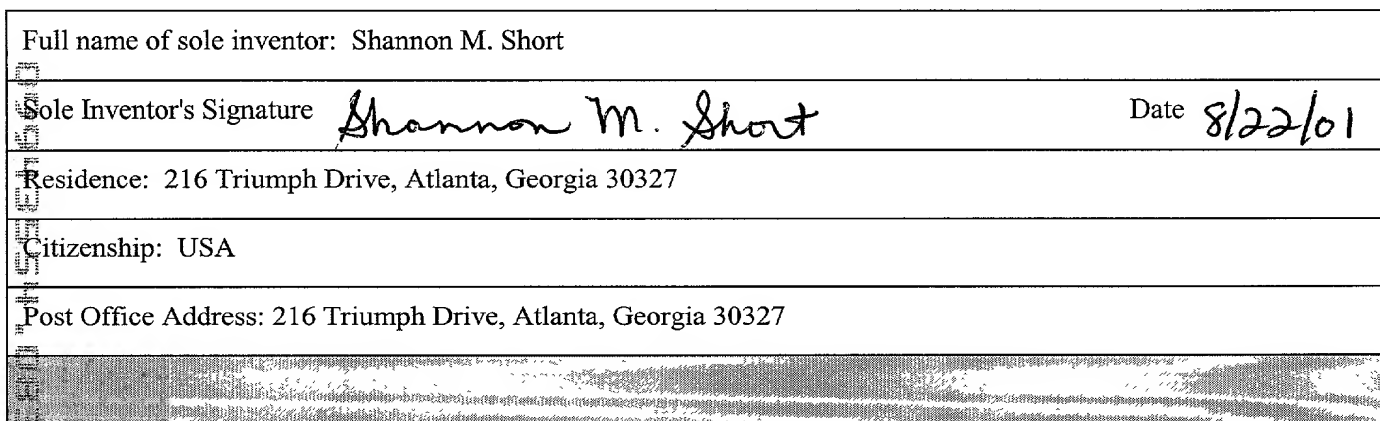 Full name of sole inventor: Shannon M. Short
Sole Inventor's Signature Shannon M. Short Date 8/22/01
Residence: 216 Triumph Drive, Atlanta, Georgia 30327
Citizenship: USA
Post Office Address: 216 Triumph Drive, Atlanta, Georgia 30327